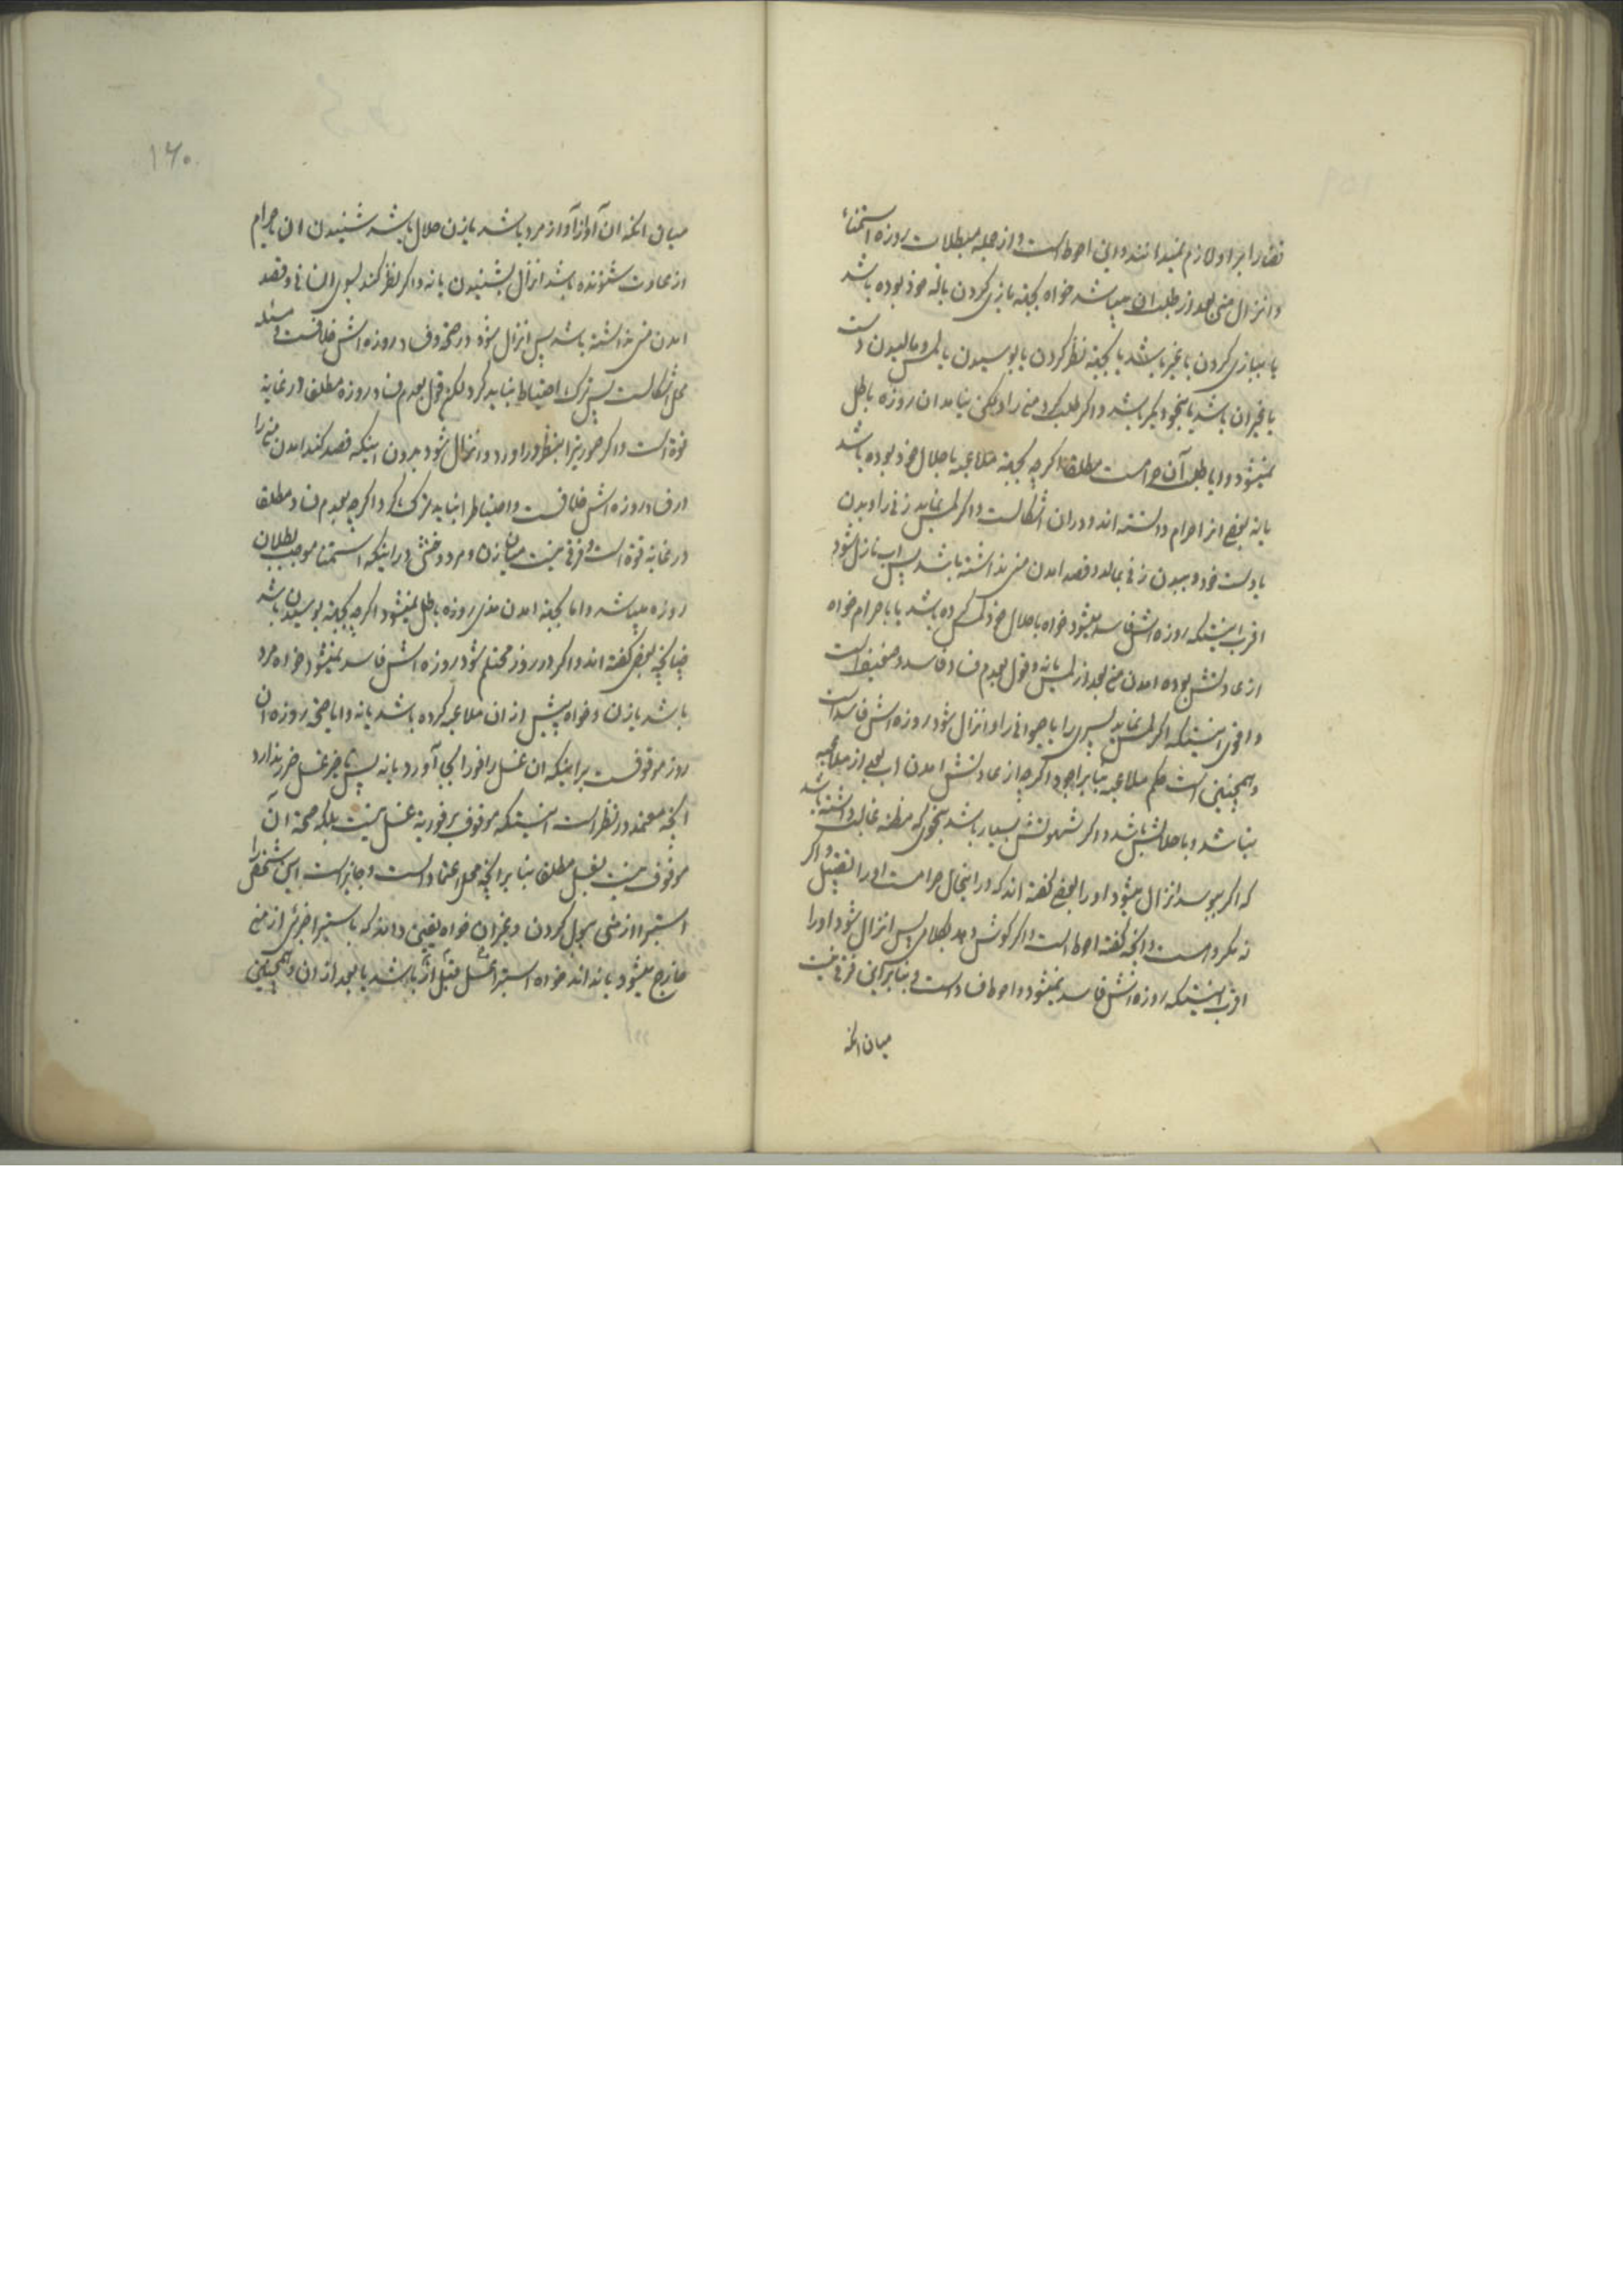 قضا را بر او لازم نمیدانند و این احوط است و از جمله مبطلات روزه استمناء
و انزال منی بعد از طلب ان میباشد خواه بجهة بازی کردن با خود بوده باشد
یا ببازی کردن با غیر باشد یا بجهة نظر کردن یا بوسیدن یا لمس و مالیدن دست
یا غیر ان باشد یا بنحو دیگر باشد و اگر طلب کرد منی را و لکن نیامد ان روزه باطل
نمیشود و ایا طلب آن حرامست مطلقا اگرچه بجهة ملاعبه با حلال خود بوده باشد
یا نه بعضی انرا حرام دانسته اند و در ان اشکالست و اگر لمس نماید زنی را و بدن
با دست خود و بدن زنی بمالد و قصد امدن منی نداشته باشد پس اب نازل شود
اقرب اینستکه روزه اش فاسد میشود خواه با حلال خود لمس کرده باشد یا با حرام خواه
از عادتش بوده امدن منی بعد از لمس یا نه و قول بعدم فساد فاسد و ضعیف است
و اقوی اینستکه اگر لمس نماید پسری را یا حیوانی را و انزال شود روزه اش فاسد است
و همچنین است حکم ملاعبه بنا بر اجود اگرچه از عادتش امدن اب بعد از ملاعبه
نباشد و با حلالش باشد و اگر شهوتش بسیار باشد بنحوی که مظنه غالب داشته باشد
که اگر ببوسد انزال میشود او را بعضی گفته اند که در اینحال حرامست او را تقبیل و اگر
نه مکروه است و انچه گفته احوط است و اگر گوش دهد بکلامی پس انزال شود او را
اقرب اینستکه روزه اش فاسد نمیشود و احوط فساد است و بنا بر این فرقی نیست
میان انکه
۱۶۰
میان انکه ان آواز آواز مرد باشد یا زن حلال باشد شنیدن ان یا حرام
از عادت شنونده باشد انزال بشنیدن یا نه و اگر نظر کند بسوی انسانی و قصد
امدن منی نداشته باشد پس انزال شود در صحة و فساد روزه اش خلافست و مسئله
محل اشکالست پس ترک احتیاط نباید کرد لکن قول بعدم فساد روزه مطلقا در غایة
قوة است و اگر صورتیرا بنظر در اورد و انزال شود بدون اینکه قصد کند امدن منی را
در فساد روزه اش خلافست و احتیاط را نباید ترک کرد اگرچه بعدم فساد مطلقا
در غایة قوة است و فرقی نیست میان زن و مرد و خنثی در اینکه استمنا موجب بطلان
روزه میباشد و اما بجهة امدن مذی روزه باطل نمیشود اگرچه بجهة بوسیدن باشد
چنانچه بعضی گفته اند و اگر در روز محتلم شود روزه اش فاسد نمیشود خواه مرد
باشد یا زن و خواه پیش از ان ملاعبه کرده باشد یا نه و ایا صحة روزه ان
روز موقوفست بر اینکه ان غسل را فورا بجا آورد یا نه پس تاخیر غسل ضرر ندارد
انچه معتمد در نظر است اینستکه موقوف بر فوریة غسل نیست بلکه صحة آن
موقوف نیست بغسل مطلقا بنا بر انچه محل اعتماد است و جایز است این شخص را
استبرا از منی ببول کردن و بغیر ان خواه یقین داند که باستبرا جزئی از منی
خارج میشود یا نداند خواه استبرا غسل قبل از ان باشد یا بعد از ان و همچنین